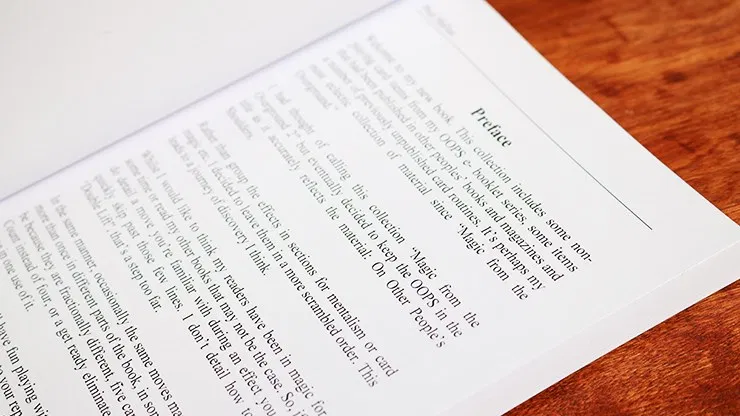 Preface
Welcome to my new book. This collection includes some non-
moving card items from my OOPS e- booklet series, some items
that had been published in other peoples' books and magazines and
a number of previously unpublished card routines. It's perhaps my
most eclectic collection of material since "Magic from the
Overground."
I had thought of calling this collection "Magic from the
Overground 2," but eventually decided to keep the OOPS in the
title as it accurately reflects the material: On Other People's
Shoulders.
Rather than group the effects in sections for mentalism or card
magic etc. I decided to leave them in a more scrambled order. This
leads to a journey of discovery I think.
Whilst I would like to think my readers have been in magic for
some time or read my other books that may not be the case. So, i
do detail a move you're familiar with during an effect you
quickly skip past those few lines. I don't detail how to
'Double Lift' that's a step too far.
In the same manner, occasionally the same moves ma
more than once in different parts of the book, in som
be because they are fractionally different, five ca
Count instead of four, or a get ready eliminate
in one use of it.
have fun playing wi
to your repe